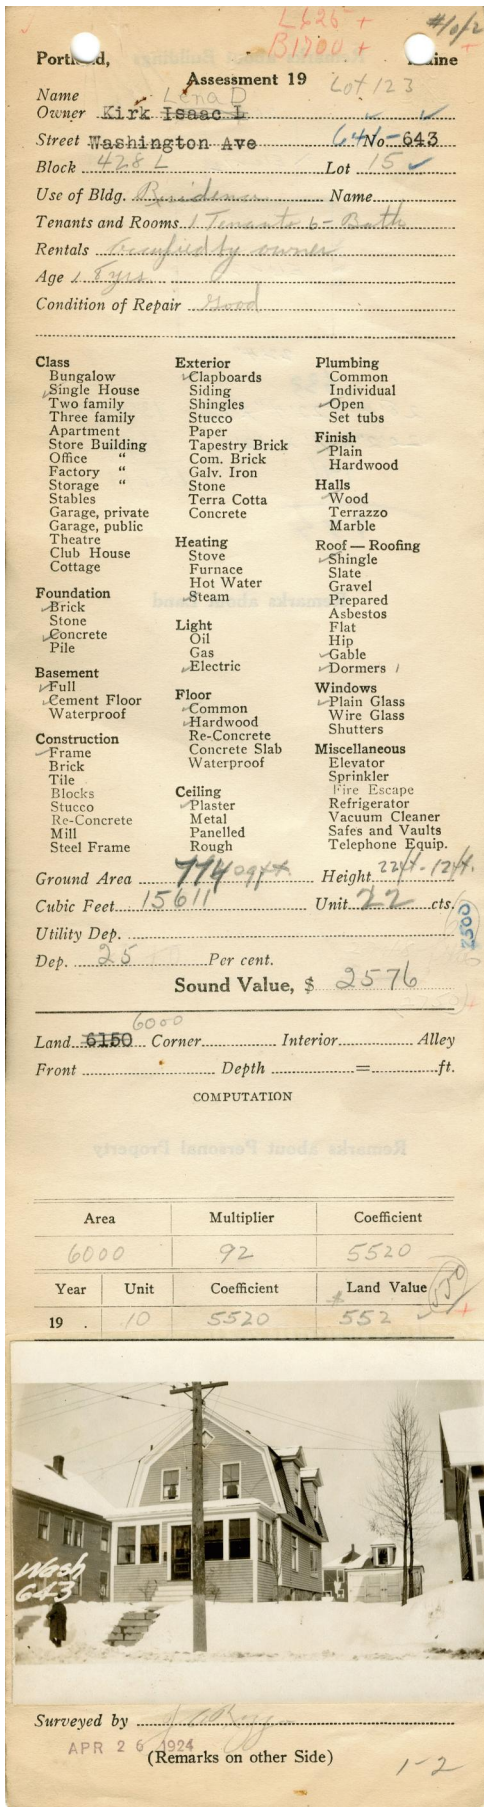 L 625 +
B 1700 +
#1 of 2
+
Portland, Maine
Assessment 19
Lot 123
Name Lena D
Owner Kirk Isaac L
Street Washington Ave 641- No. 643
Block 428 L Lot 15
Use of Bldg. Residence Name
Tenants and Rooms 1 Tenant 6 - Bath
Rentals Occupied by owner
Age 18 yrs
Condition of Repair Good
Class
Bungalow
Single House
Two family
Three family
Apartment
Store Building
Office "
Factory "
Storage "
Stables
Garage, private
Garage, public
Theatre
Club House
Cottage
Foundation
Brick
Stone
Concrete
Pile
Basement
Full
Cement Floor
Waterproof
Construction
Frame
Brick
Tile
Blocks
Stucco
Re-Concrete
Mill
Steel Frame
Exterior
Clapboards
Siding
Shingles
Stucco
Paper
Tapestry Brick
Com. Brick
Galv. Iron
Stone
Terra Cotta
Concrete
Heating
Stove
Furnace
Hot Water
Steam
Light
Oil
Gas
Electric
Floor
Common
Hardwood
Re-Concrete
Concrete Slab
Waterproof
Ceiling
Plaster
Metal
Panelled
Rough
Plumbing
Common
Individual
Open
Set tubs
Finish
Plain
Hardwood
Halls
Wood
Terrazzo
Marble
Roof — Roofing
Shingle
Slate
Gravel
Prepared
Asbestos
Flat
Hip
Gable
Dormers 1
Windows
Plain Glass
Wire Glass
Shutters
Miscellaneous
Elevator
Sprinkler
Fire Escape
Refrigerator
Vacuum Cleaner
Safes and Vaults
Telephone Equip.
Ground Area 774 sq ft. Height 22 ft. - 12 ft.
Cubic Feet 15611 Unit 22 cts.
2500
Utility Dep.
Dep. 25 Per cent.
Sound Value, $ 2576
6000
Land 6150 Corner Interior Alley
Front Depth = ft.
COMPUTATION
Area Multiplier Coefficient
6000 92 5520
Year Unit Coefficient Land Value
19 . 10 5520 $ 552
550
+
Wash
643
Surveyed by
APR 26 1924
(Remarks on other Side)
1-2